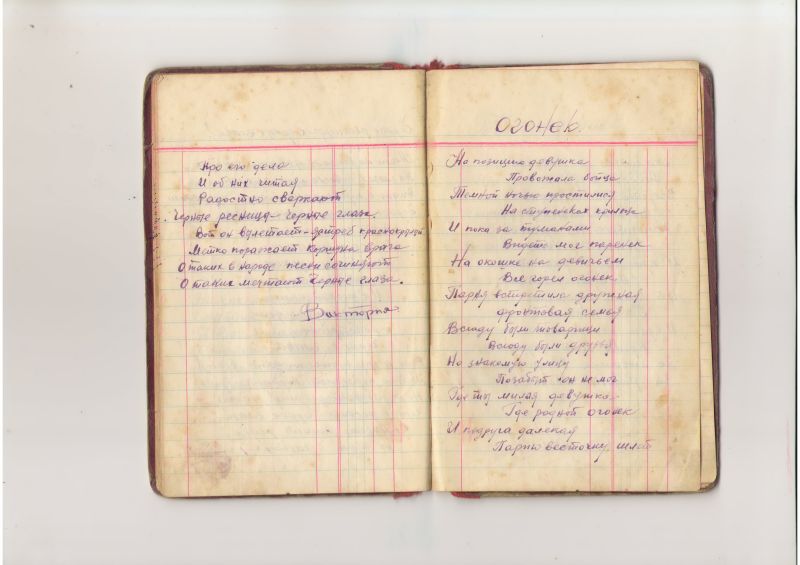 Про его дела
И об них читая
Радостно сверкают
Черные ресницы – Черные глаза.
Вот он вылетает – Ястреб краснокрылый
Метко поражает Коршуна врага
О таких в народе песни сочиняют
О таких мечтают Черные глаза.
Виктория
Огонек.
На позицию девушка
Провожала бойца
Темной ночью простилися
На ступеньках крыльца
И пока за туманами
Видеть мог паренек
На окошке на девичьем
Все горел огонек.
Парня встретила дружная
фронтовая семья
Всюду были товарищи
Всюду были друзья
Но знакомую улицу
Позабыть он не мог
Где ты милая девушка
Где родной огонек
И подруга далекая
Парню весточку шлет